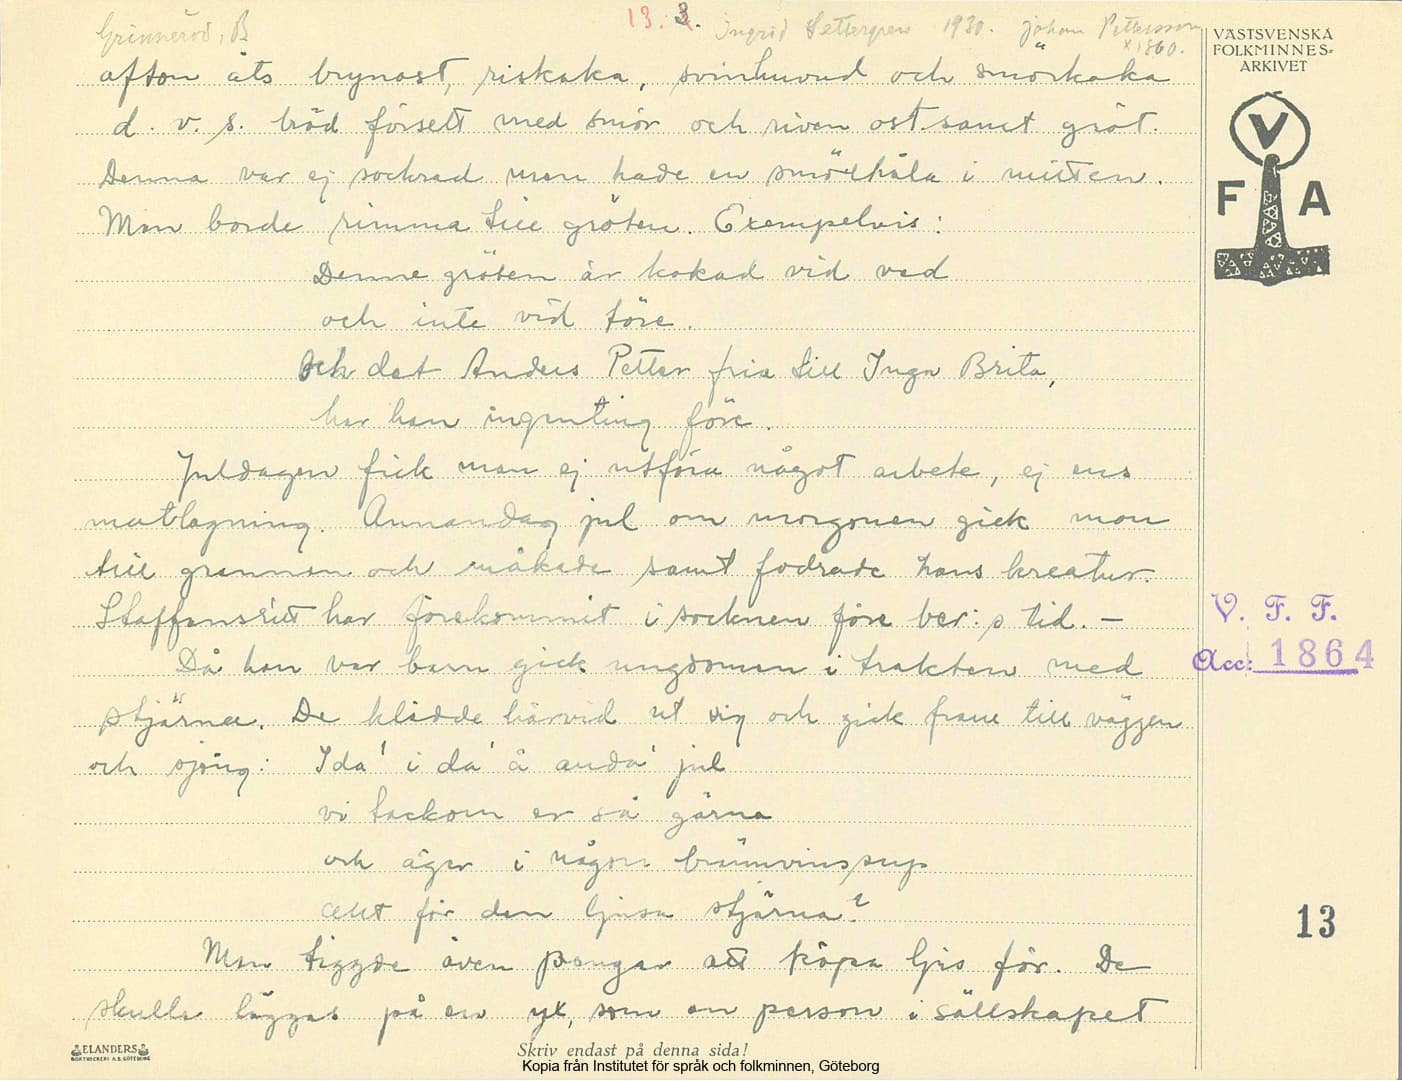 Grinneröd, B 13. 3. Ingrid Settergren 1930. Johan Pettersson
x 1860.
VÄSTSVENSKA
FOLKMINNES-
ARKIVET
V
F A
afton åts brynost, riskaka, svinhuvud och smörkaka
d. v. s. bröd försett med smör och riven ost samt gröt.
Denna var ej sockrad men hade en smörhåla i mitten.
Man borde rimma till gröten. Exempelvis:
Denne gröten är kokad vid ved
och inte vid töre.
Och det Anders Petter fria till Inga Brita,
har han ingenting före.
Juldagen fick man ej utföra något arbete, ej ens
matlagning. Annandag jul om morgonen gick man
till grannen och måkade samt fodrade hans kreatur.
Staffansritt har förekommit i socknen före ber:s tid. –
Då han var barn gick ungdomen i trakten med
stjärna. De klädde härvid ut sig och gick fram till väggen
och sjöng: I da' i da' å anda' jul
vi tackom er så gärna
och äger i någon brännvinssup
allt för den ljusa stjärna?
Man tiggde även pengar att köpa ljus för. De
skulle läggas på en yx, som en person i sällskapet
V. F. F.
Acc: 1864
13
ELANDERS
BOKTRYCKERI A.B. GÖTEBORG
Skriv endast på denna sida!
Kopia från Institutet för språk och folkminnen, Göteborg